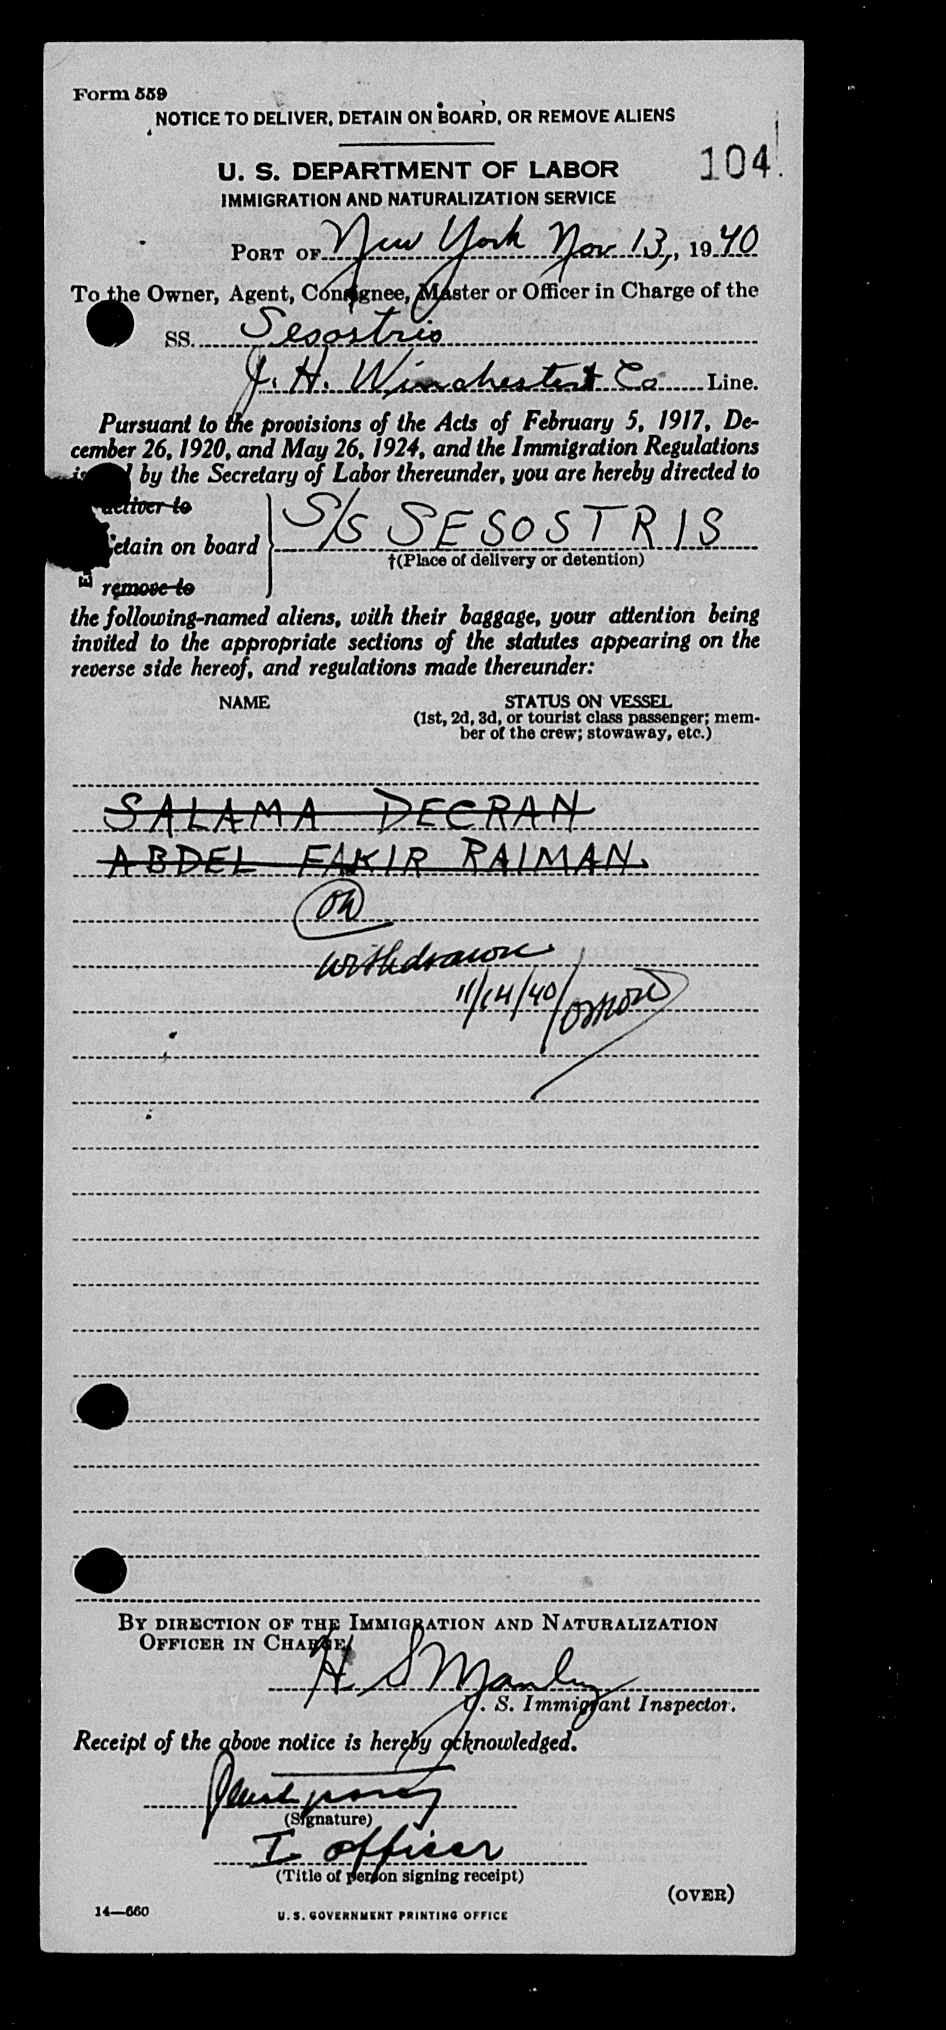 Form 559
NOTICE TO DELIVER, DETAIN ON BOARD, OR REMOVE ALIENS
104
U. S. DEPARTMENT OF LABOR
IMMIGRATION AND NATURALIZATION SERVICE
PORT OF New York Nov 13, 1940
To the Owner, Agent, Consignee, Master or Officer in Charge of the
SS. Sesostris
J. H. Winchester & Co Line.
Pursuant to the provisions of the Acts of February 5, 1917, De-
cember 26, 1920, and May 26, 1924, and the Immigration Regulations
by the Secretary of Labor thereunder, you are hereby directed to
deliver to
etain on board S/S SESOSTRIS
†(Place of delivery or detention)
remove to
the following-named aliens, with their baggage, your attention being
invited to the appropriate sections of the statutes appearing on the
reverse side hereof, and regulations made thereunder:
NAME STATUS ON VESSEL
(1st, 2d, 3d, or tourist class passenger; mem-
ber of the crew; stowaway, etc.)
SALAMA DECRAN
ABDEL FAKIR RAIMAN
withdrawn
11/14/40
BY DIRECTION OF THE IMMIGRATION AND NATURALIZATION
OFFICER IN CHARGE
H S Manley
U. S. Immigrant Inspector.
Receipt of the above notice is hereby acknowledged.
(Signature)
I officer
(Title of person signing receipt)
(OVER)
14—660
U. S. GOVERNMENT PRINTING OFFICE